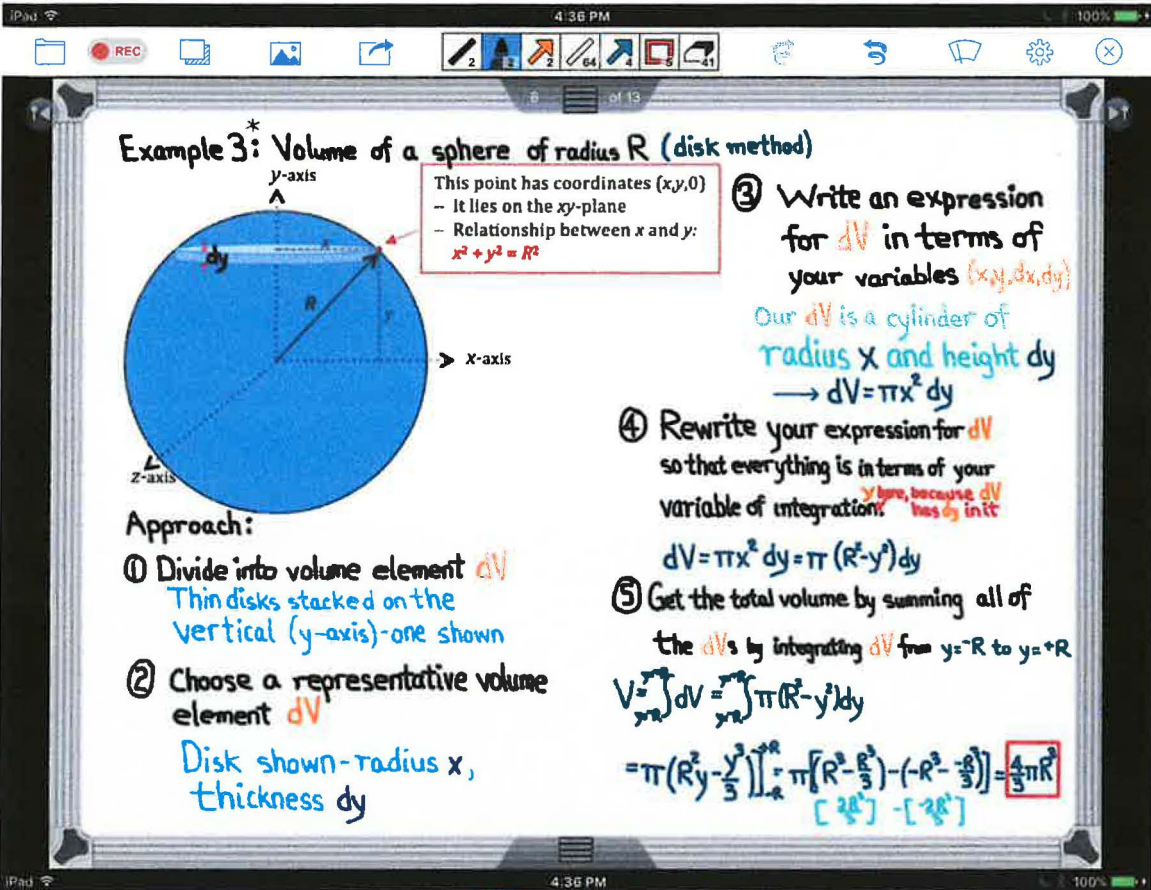 iPad
4:36 PM
100%
REC
2
2
2
64
4
5
41
8 of 13
Example 3*: Volume of a sphere of radius R (disk method)
y-axis
This point has coordinates (x,y,0)
– It lies on the xy-plane
– Relationship between x and y:
x² + y² = R²
x
dy
R
y
x-axis
z-axis
Approach:
① Divide into volume element dV
Thin disks stacked on the
vertical (y-axis)-one shown
② Choose a representative volume
element dV
Disk shown-radius x,
thickness dy
③ Write an expression
for dV in terms of
your variables (x,y,dx,dy)
Our dV is a cylinder of
radius x and height dy
→ dV=πx² dy
④ Rewrite your expression for dV
so that everything is in terms of your
variable of integration: y here, because dV
has dy in it
dV=πx² dy=π(R²-y²)dy
⑤ Get the total volume by summing all of
the dVs by integrating dV from y=-R to y=+R
V=∫dV=∫π(R²-y²)dy
=π(R²y-y³/3)]⁺ᴿ₋ᴿ=π[(R³-R³/3)-(-R³--R³/3)]=4/3πR³
iPad
4:36 PM
100%